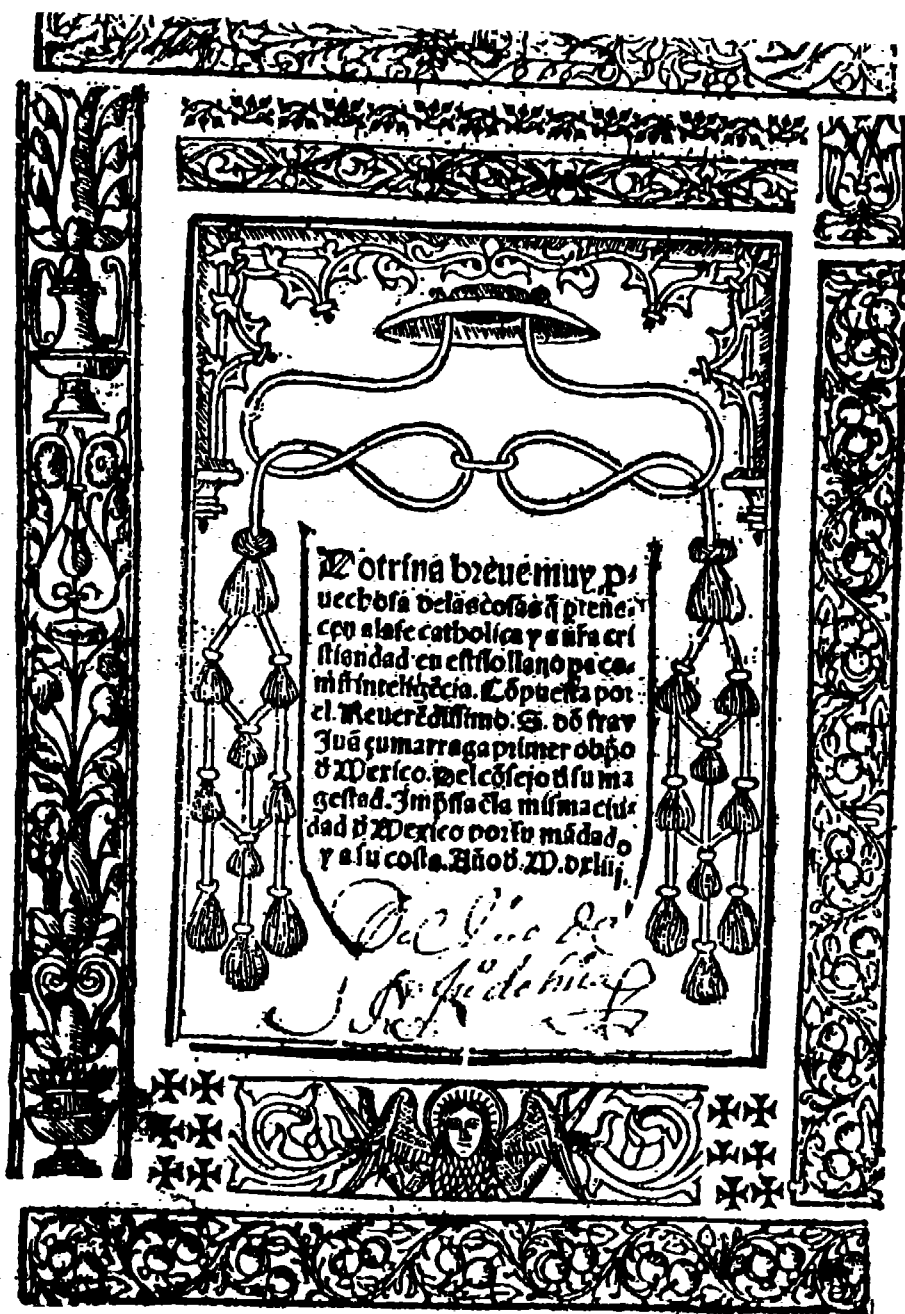 Dotrina breue muy ꝓ⸗
uechosa delas cosas q̃ ꝑtene⸗
cen a la fe catholica y a nr̃a cri
stiandad en estilo llano pa co⸗
mũ inteligẽcia. Cõpuesta por
el. Reuerẽdissimo. S. dõ fray
Juã çumarraga primer obp̃o
d̃ Mexico. Del cõsejo d̃ su ma
gestad. Impssa ẽ la misma ciu⸗
dad d̃ Mexico por su mãdado
y a su costa. Año d̃. M. dxliij